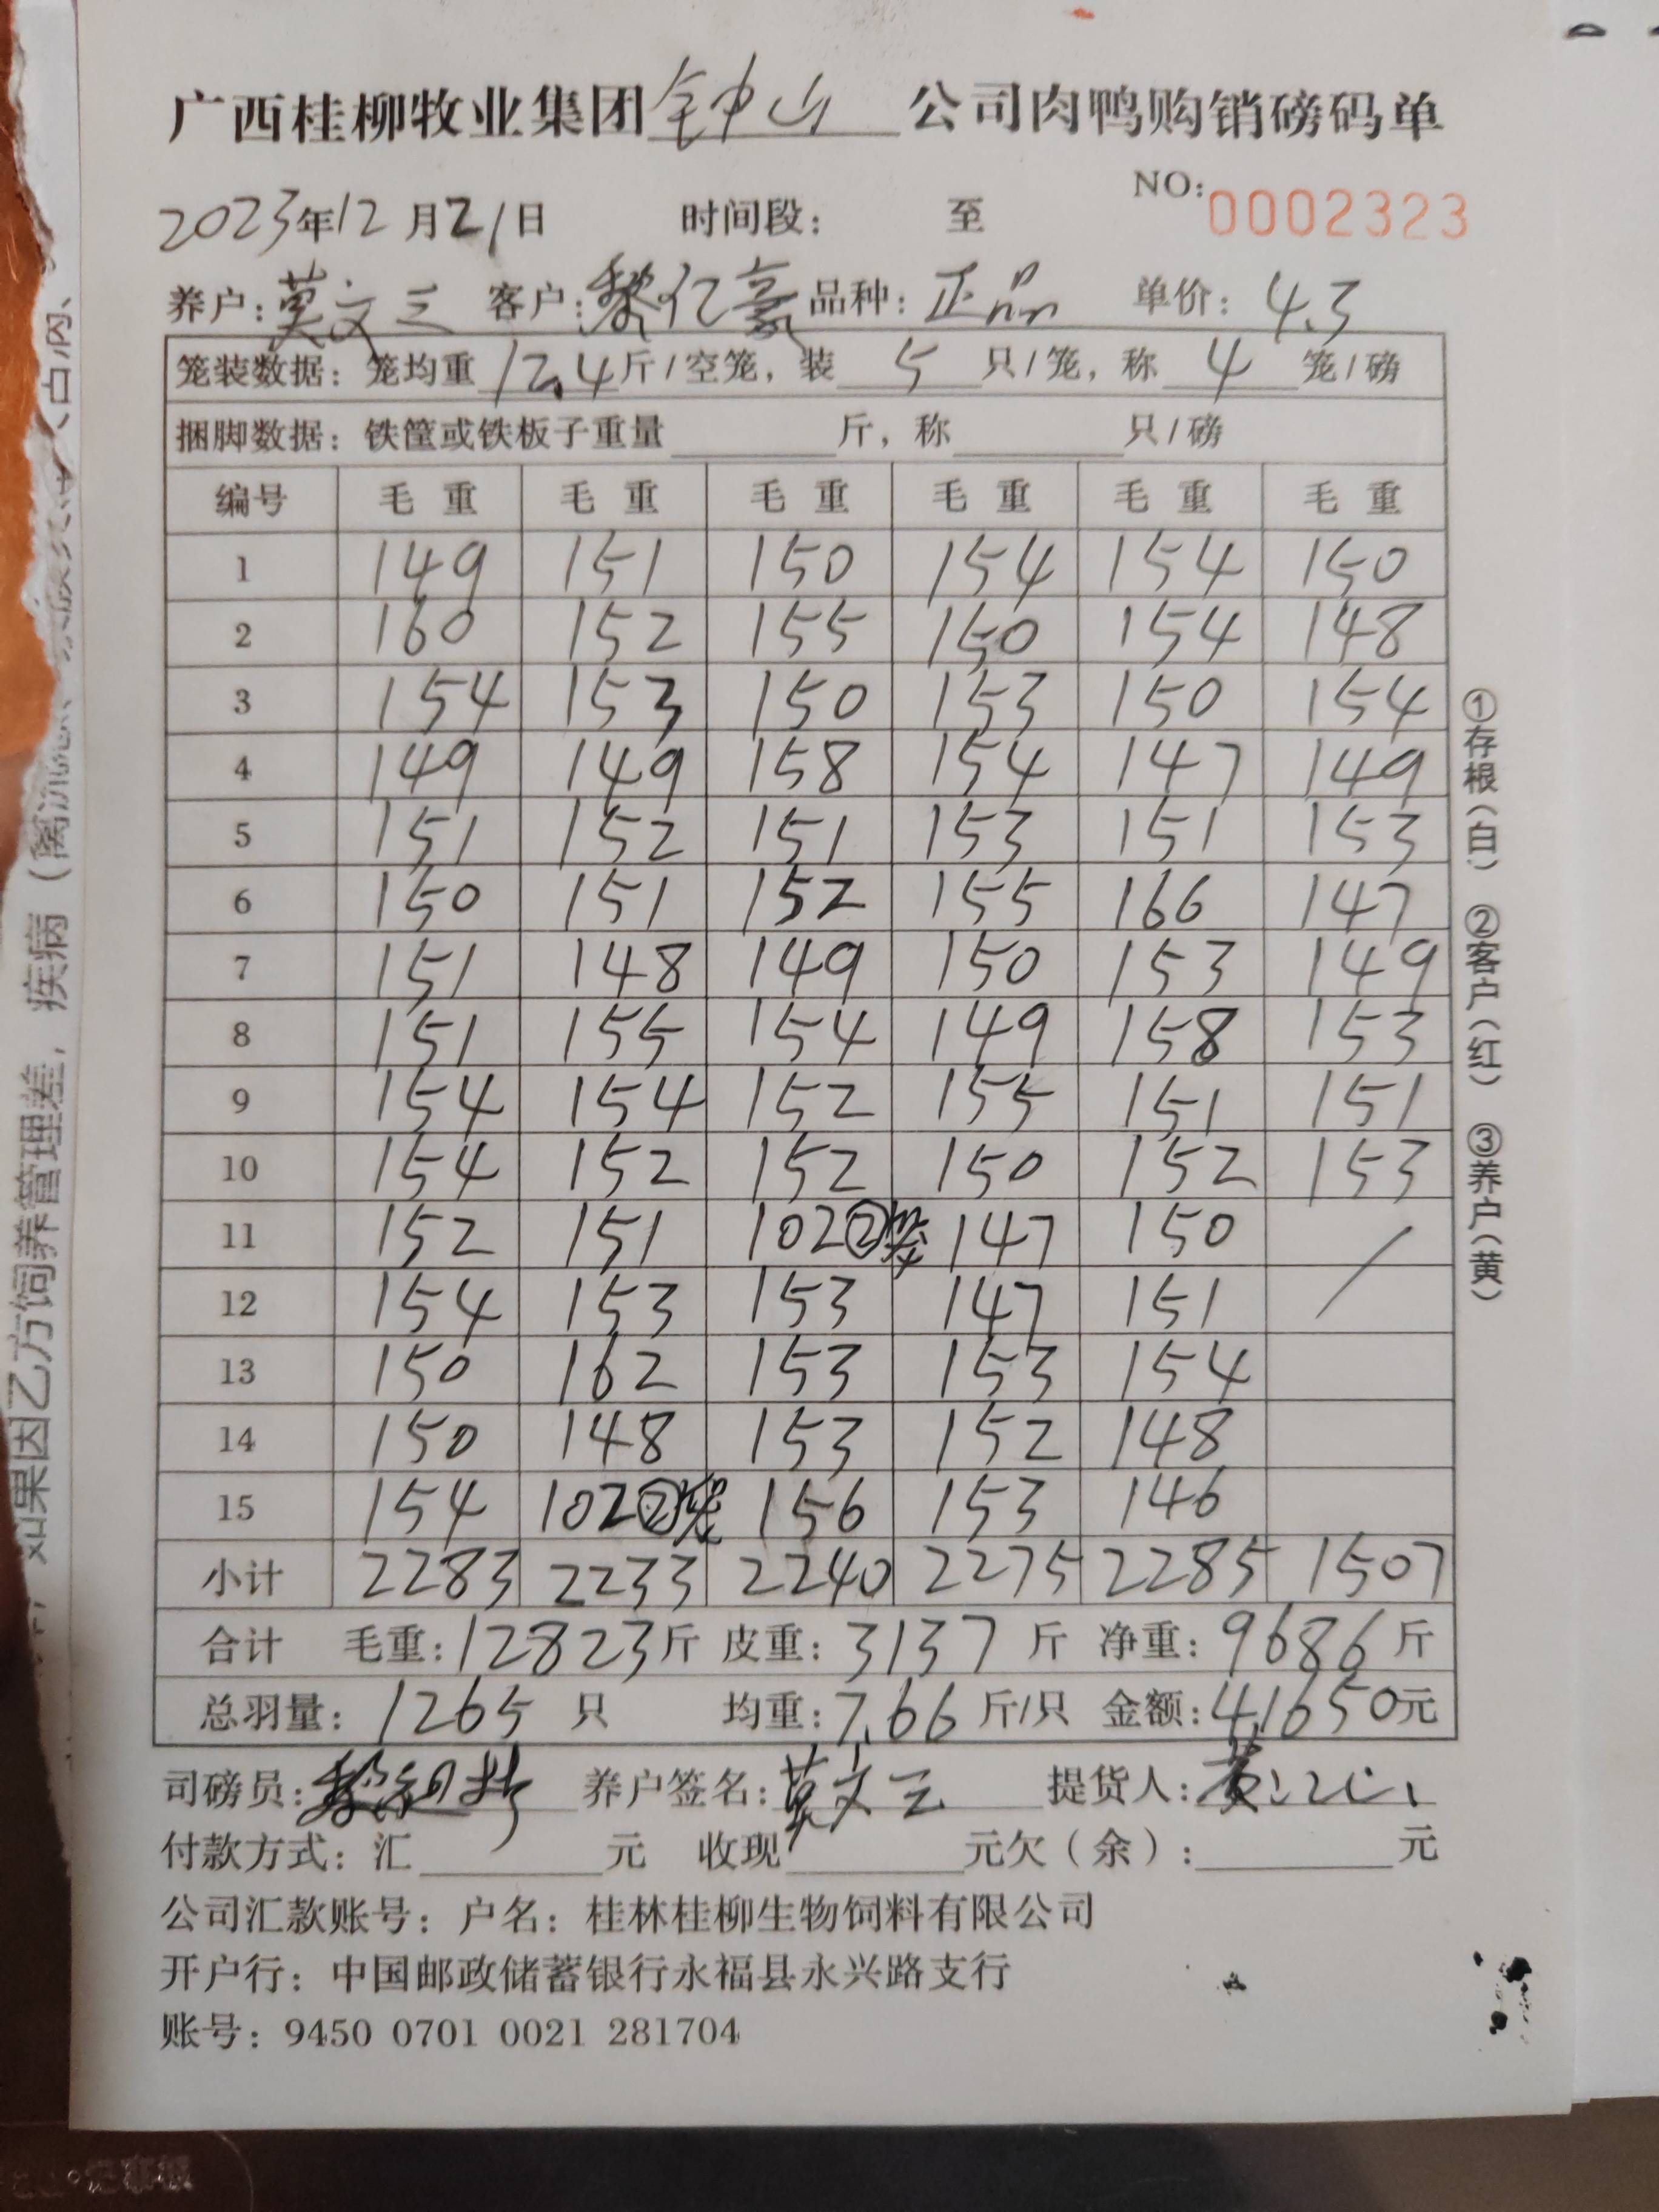 广西桂柳牧业集团钟山公司肉鸭购销磅码单
2023年12月21日 时间段: 至 NO:0002323
养户:莫文三 客户:黎亿豪 品种:正品 单价:4.3
笼装数据:笼均重12.4斤/空笼,装5只/笼,称4笼/磅
捆脚数据:铁筐或铁板子重量 斤,称 只/磅
编号 毛重 毛重 毛重 毛重 毛重 毛重
1 149 151 150 154 154 150
2 160 152 155 150 154 148
3 154 153 150 153 150 154
4 149 149 158 154 147 149
5 151 152 151 153 151 153
6 150 151 152 155 166 147
7 151 148 149 150 153 149
8 151 155 154 149 158 153
9 154 154 152 155 151 151
10 154 152 152 150 152 153
11 152 151 102②笼 147 150 /
12 154 153 153 147 151
13 150 162 153 153 154
14 150 148 153 152 148
15 154 102②笼 156 153 146
小计 2283 2233 2240 2275 2285 1507
合计 毛重:12823斤 皮重:3137斤 净重:9686斤
总羽量:1265只 均重:7.66斤/只 金额:41650元
司磅员: 养户签名:莫文三 提货人:
付款方式:汇 元 收现 元欠(余): 元
公司汇款账号:户名:桂林桂柳生物饲料有限公司
开户行:中国邮政储蓄银行永福县永兴路支行
账号:9450 0701 0021 281704
①存根(白) ②客户(红) ③养户(黄)
如果因乙方饲养管理差,疾病(离